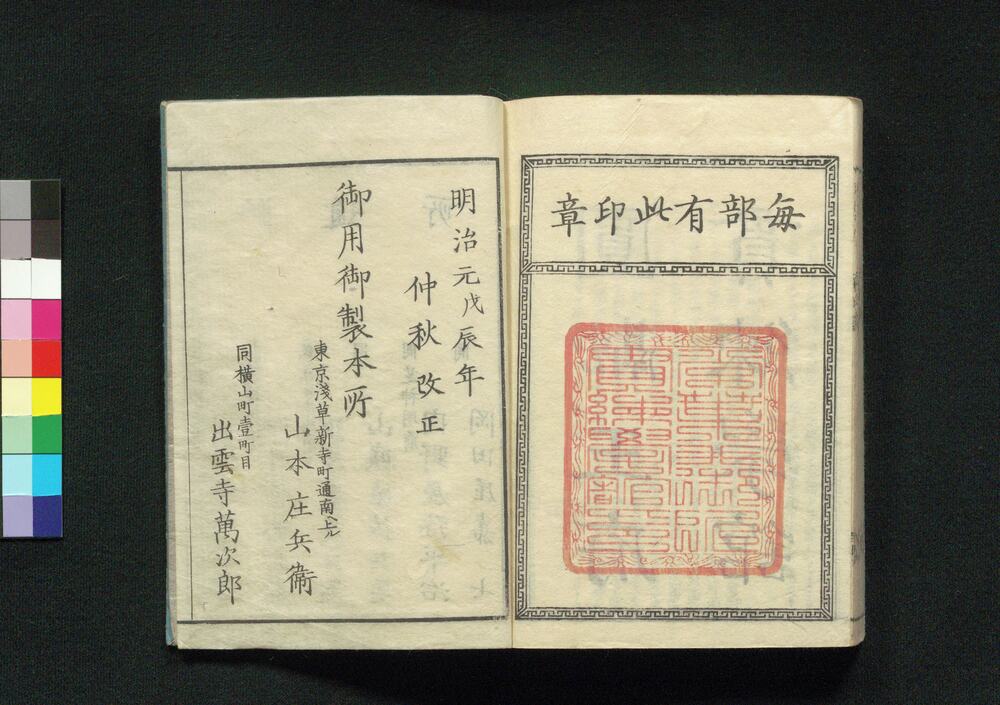 毎部有此印章
明治元戊辰年
仲秋改正
御用御製本所
東京淺草新寺町通南上ル
山本庄兵衞
同橫山町壹町目
出雲寺萬次郎